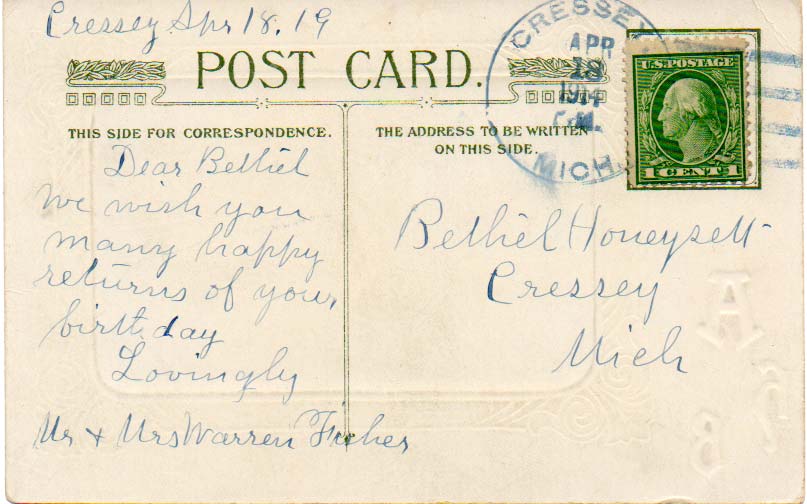 Cressey Apr 18. 19
POST CARD.
CRESSEY
APR
18
1914
MICH.
U.S. POSTAGE
1 CENT 1
THIS SIDE FOR CORRESPONDENCE.
THE ADDRESS TO BE WRITTEN
ON THIS SIDE.
Dear Bethiel
We wish you
many happy
returns of your
birthday
Lovingly
Mr & Mrs Warren Fisher
Bethiel Honeysett
Cressey
Mich